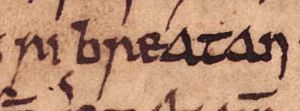 ri breatan